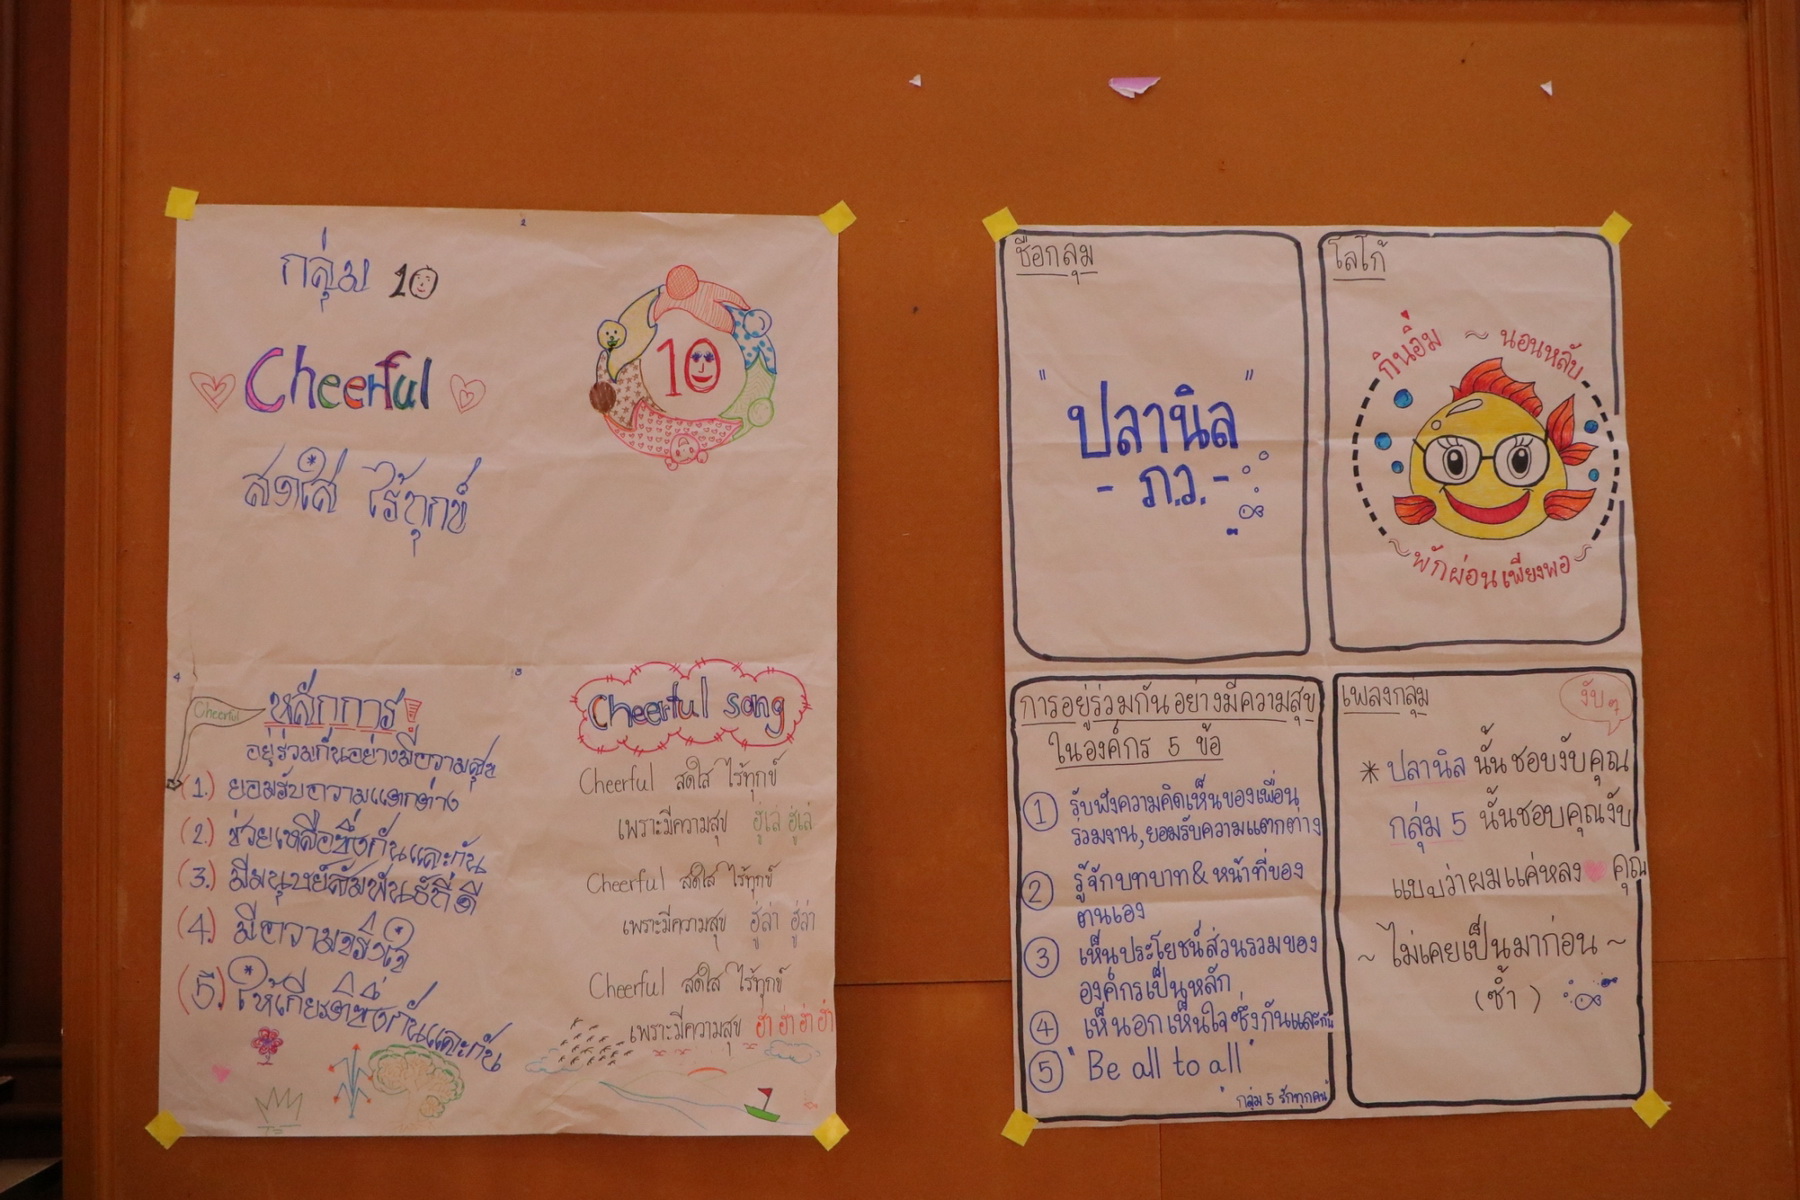 กลุ่ม 10
Cheerful
สดใส ไร้ทุกข์
10
Cheerful
หลักการ
อยู่ร่วมกันอย่างมีความสุข
(1.) ยอมรับความแตกต่าง
(2.) ช่วยเหลือซึ่งกันและกัน
(3.) มีมนุษย์สัมพันธ์ที่ดี
(4.) มีความจริงใจ
(5.) ให้เกียรติซึ่งกันและกัน
Cheerful song
Cheerful สดใส ไร้ทุกข์
เพราะมีความสุข ฮู่เล่ ฮู่เล่
Cheerful สดใส ไร้ทุกข์
เพราะมีความสุข ฮู่ล่า ฮู่ล่า
Cheerful สดใส ไร้ทุกข์
เพราะมีความสุข ฮ่า ฮ่า ฮ่า ฮ่า
ชื่อกลุ่ม
"ปลานิล"
- ภ.ว.-
โลโก้
กินอิ่ม ~ นอนหลับ
~พักผ่อนเพียงพอ~
การอยู่ร่วมกันอย่างมีความสุข
ในองค์กร 5 ข้อ
① รับฟังความคิดเห็นของเพื่อน
ร่วมงาน,ยอมรับความแตกต่าง
② รู้จักบทบาท & หน้าที่ของ
ตนเอง
③ เห็นประโยชน์ส่วนรวมของ
องค์กรเป็นหลัก
④ เห็นอกเห็นใจซึ่งกันและกัน
⑤ "Be all to all"
กลุ่ม 5 รักทุกคน
เพลงกลุ่ม
งับๆ
* ปลานิล นั้นชอบงับคุณ
กลุ่ม 5 นั้นชอบคุณงับ
แบบว่าผมแค่หลง คุณ
~ ไม่เคยเป็นมาก่อน ~
(ซ้ำ)